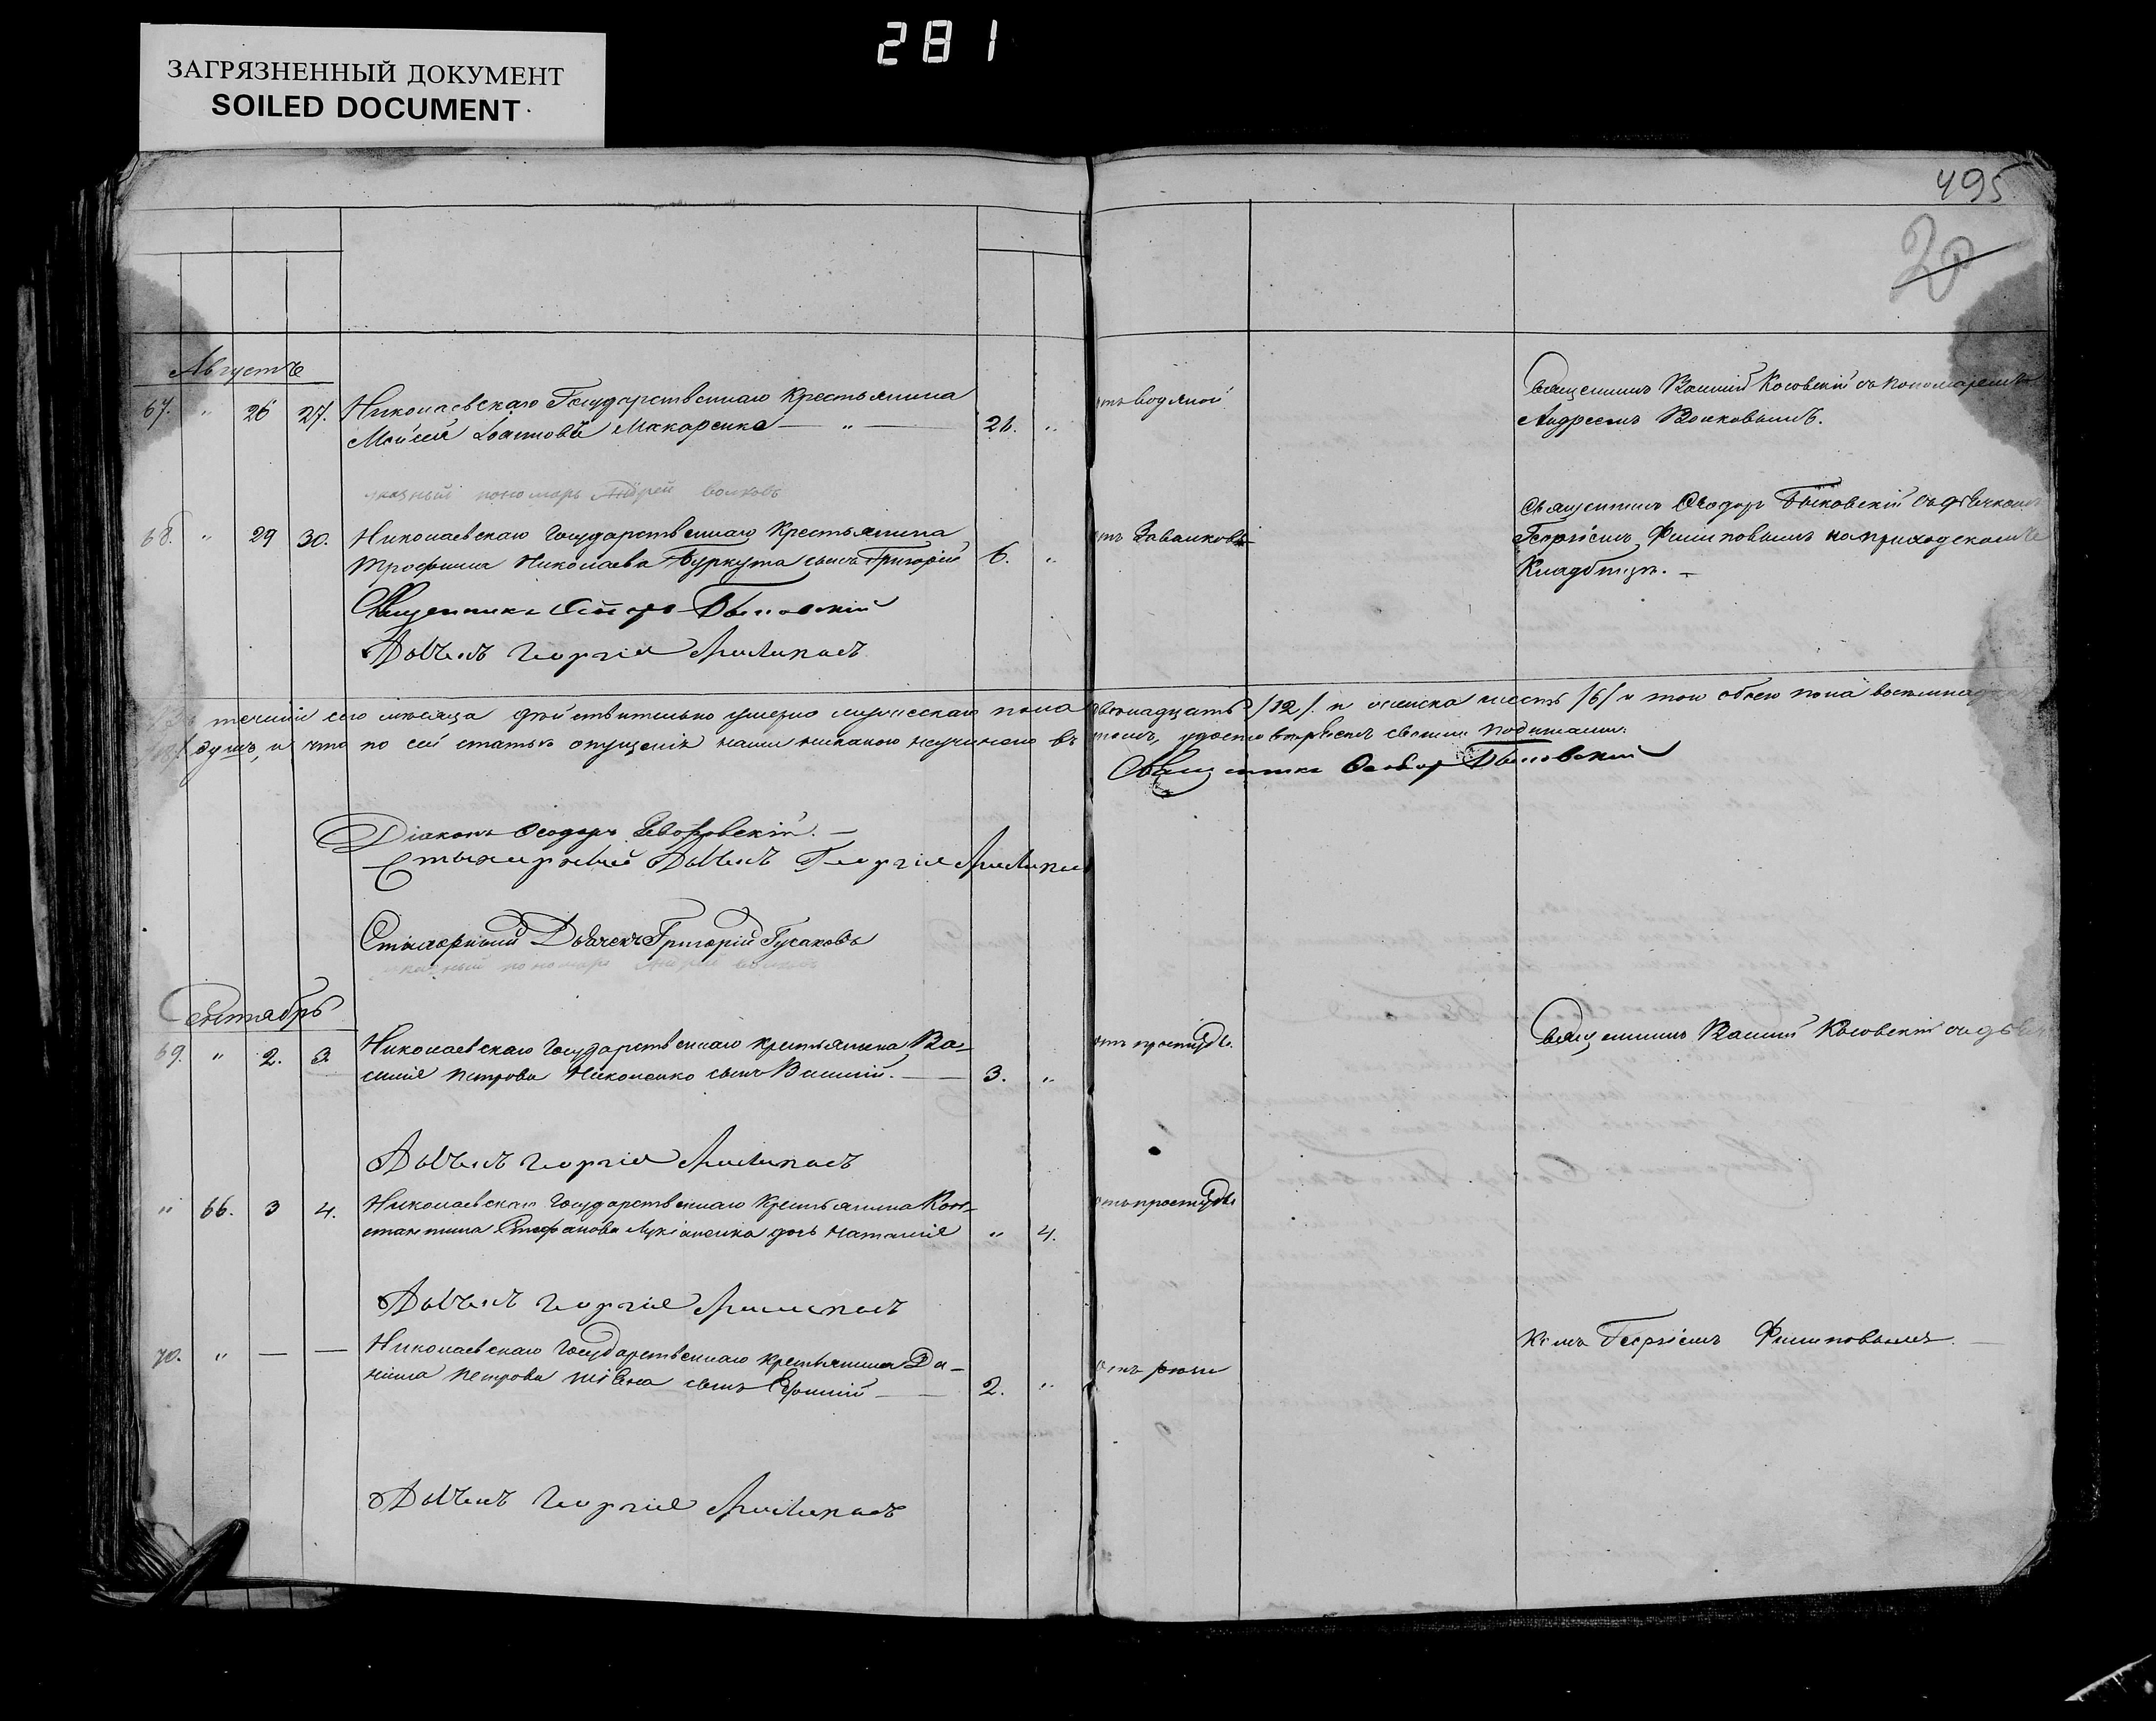 281
ЗАГРЯЗНЕННЫЙ ДОКУМЕНТ
SOILED DOCUMENT
495
20
Августъ
67. " 26 27. Николаевскаго Государственнаго Крестьянина
Мойсей Іоанновъ Макаренко — " — 21. "
отъ водяной
Священникъ Василий Косовскій съ пономаремъ
Андреемъ Волковымъ.
указный пономарь Андрей Волковъ
68. " 29 30. Николаевскаго Государственнаго Крестьянина
Трофима Николаева Буркута сынъ Григорій 6. "
отъ Заваиковъ
Священникъ Ѳеодоръ Быковскій съ дьячкомъ
Георгіемъ Филиповымъ на приходскомъ
Кладбищѣ. —
Священникъ Ѳеодоръ Быковскій
Дьячекъ Георгій Филиповъ
въ теченіи сего мѣсяца дѣйствительно умерло мужескаго пола двенадцать /12/. и женска шесть /6/ и того обоего пола восемнадцать
/18/ душъ, и что по сей статьѣ опущенія нами никакого неучинено въ томъ, удостовѣряемъ своими подписами:
Священникъ Ѳеодоръ Быковскій
Діаконъ Ѳеодоръ
Стихарный Дьячекъ Георгій Филиповъ
Стихарный Дьячекъ Григорій Гусаковъ
указный пономарь Андрей Волковъ
Сентябрь
69. " 2. 3. Николаевскаго Государственнаго крестьянина Ва-
силія Петрова Николенко сынъ Василій. — 3. "
отъ простуды.
Священникъ Василий Косовскій съ дьяч
Дьячекъ Георгій Филиповъ
" 66. 3 4. Николаевскаго Государственнаго Крестьянина Кон-
стантина Стефанова Лукіаненка дочь Наталія " 4.
отъ простуды
Дьячекъ Георгій Филиповъ
70. " — — Николаевскаго Государственнаго крестьянина Да-
ніила Петрова сынъ — 2. "
отъ
комъ Георгіемъ Филиповымъ.
Дьячекъ Георгій Филиповъ